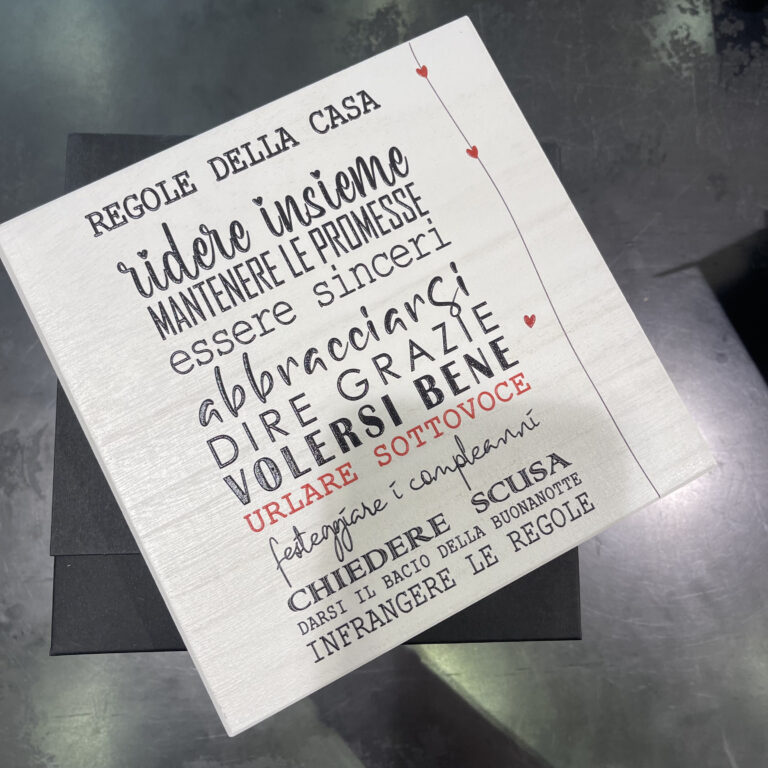 REGOLE DELLA CASA
ridere insieme
MANTENERE LE PROMESSE
essere sinceri
abbracciarsi
DIRE GRAZIE
VOLERSI BENE
URLARE SOTTOVOCE
festeggiare i compleanni
CHIEDERE SCUSA
DARSI IL BACIO DELLA BUONANOTTE
INFRANGERE LE REGOLE